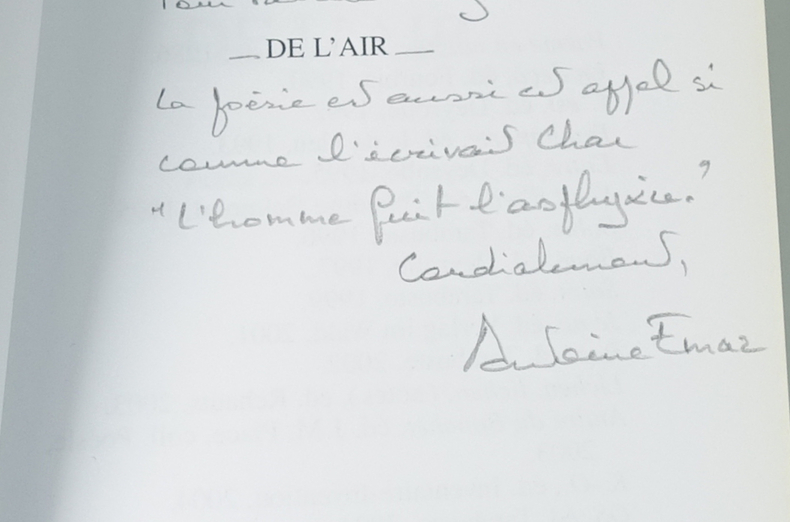 Pour
DE L'AIR
La poésie est aussi cet appel si
comme l'écrivait Char
"L'homme fuit l'asphyxie."
Cordialement,
Antoine Emaz